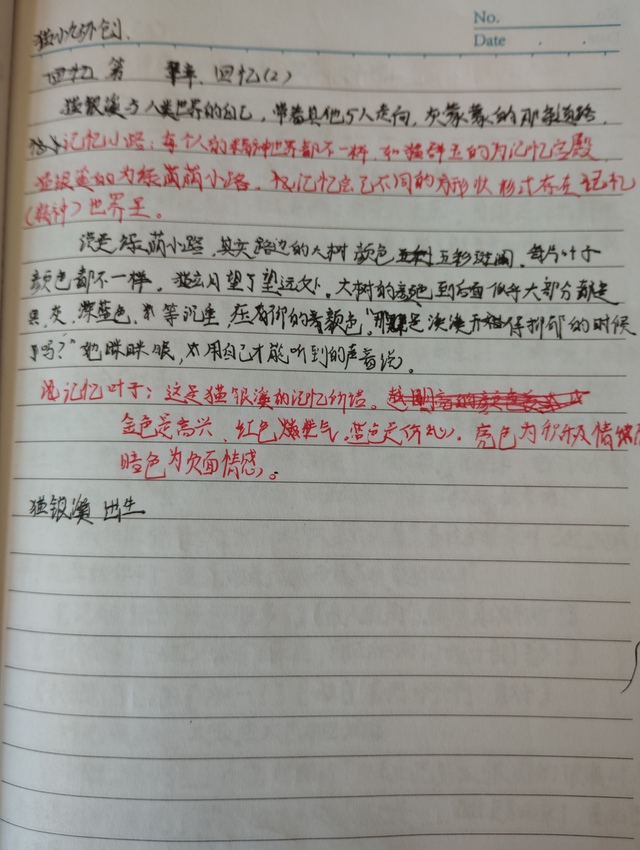 猫小九外创.
No.
Date
回忆 第 章. 回忆(2)
猫银溪与人类世界的自己，带着其他5人走向，灰蒙蒙的那条道路.
记忆小路：每个人的精神世界都不一样，如猫群主的为记忆宫殿
猫银溪的为绿荫荫小路，记忆会已不同的形状形式存在记忆
(精神)世界里。
说是绿荫小路，其实路边的大树颜色五彩斑阑，每片叶子
颜色都不一样，猫玄月望了望远处，大树的颜色到后面似乎大部分都是
黑，灰，深蓝色，等沉重，压抑的颜色"那是溪溪开始得抑郁的时候
了吗？"她眯眯眼，用自己才能听到的声音说。
记忆叶子：这是猫银溪的记忆价结。
金色是高兴，红色 气，蓝色是伤心，亮色为积极情绪
暗色为欠面情感。
猫银溪 出生